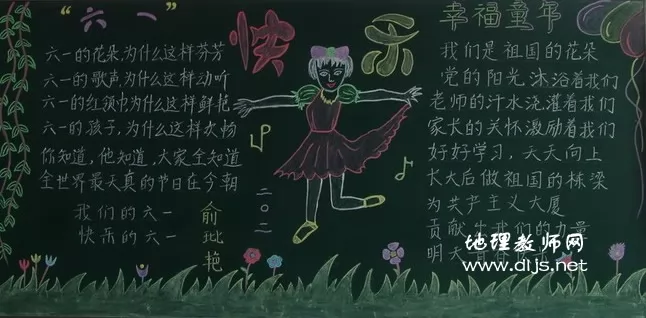 “六一”
快乐
幸福童年
六一的花朵,为什么这样芬芳
六一的歌声为什么这样动听
六一的红领巾为什么这样鲜艳
六一的孩子,为什么这样欢畅
你知道,他知道,大家全知道
全世界最天真的节日在今朝
我们的六一
快乐的六一
二〇二
俞玭艳
我们是祖国的花朵
党的阳光沐浴着我们
老师的汗水浇灌着我们
家长的关怀激励着我们
好好学习,天天向上
长大后做祖国的栋梁
为共产主义大厦
贡献 我们的力量
明天
地理教师网
www.dljs.net